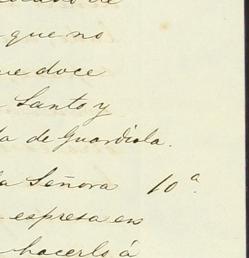 que no
ue doce
Santo y
la de Guardiola.
la Señora 10ª.
espresa en
hacerlo á